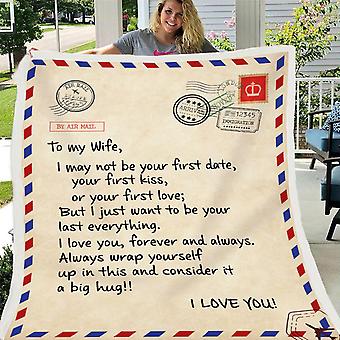 AIR MAIL
BY AIR MAIL
ARRIVED
12345
IMMIGRATION
To my Wife,
I may not be your first date,
your first kiss,
or your first love;
But I just want to be your
last everything.
I love you, forever and always.
Always wrap yourself
up in this and consider it
a big hug!!
I LOVE YOU!